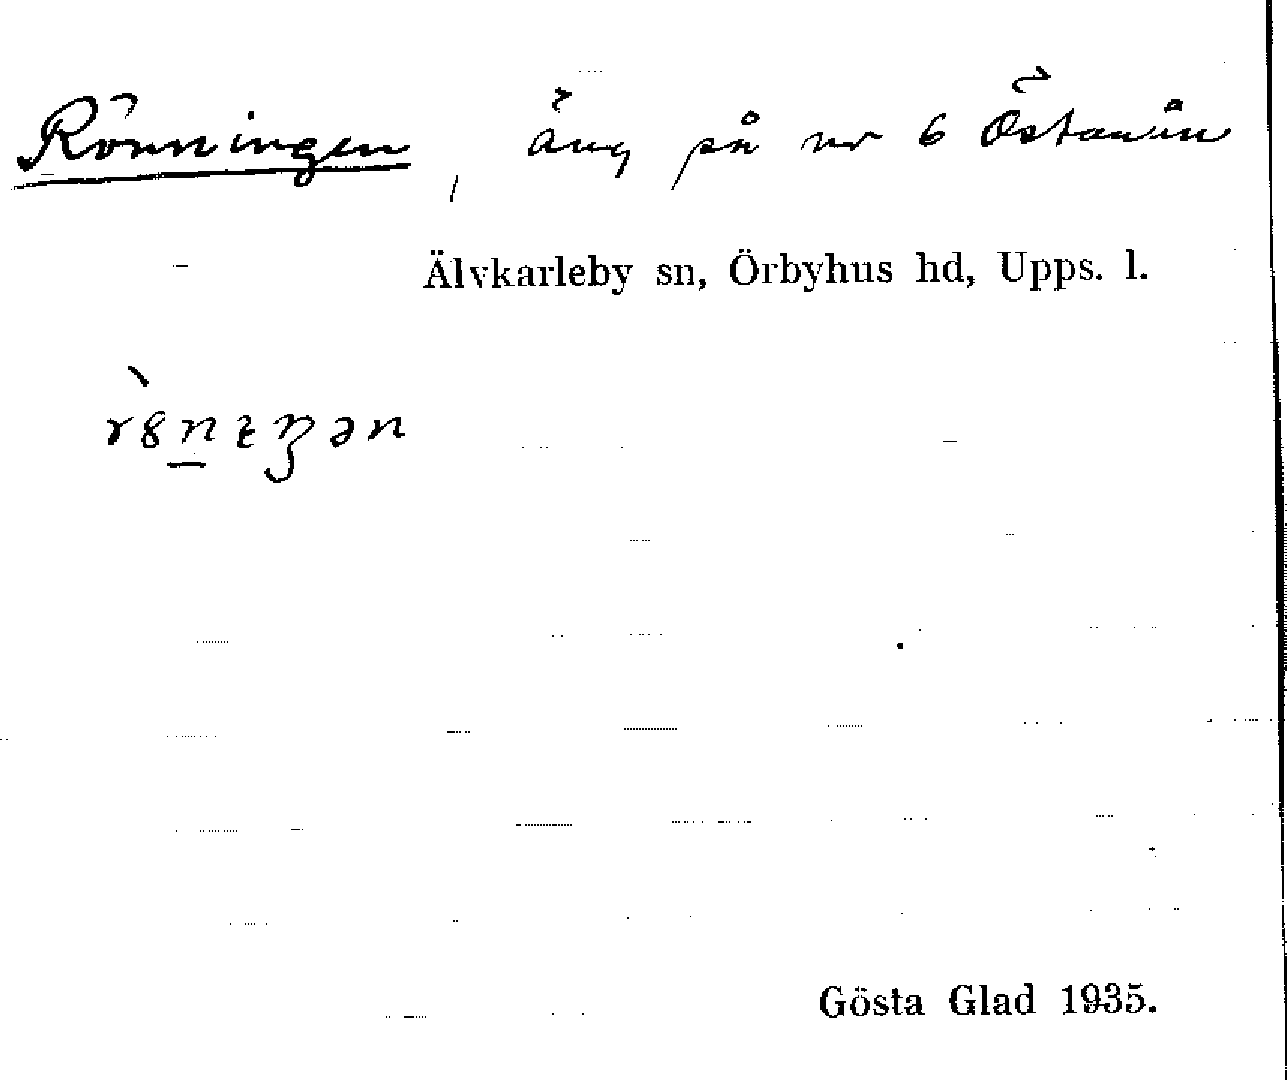 Rönningen, äng på nr 6 Östanån
Älvkarleby sn, Örbyhus hd, Upps. l.
Gösta Glad 1935.